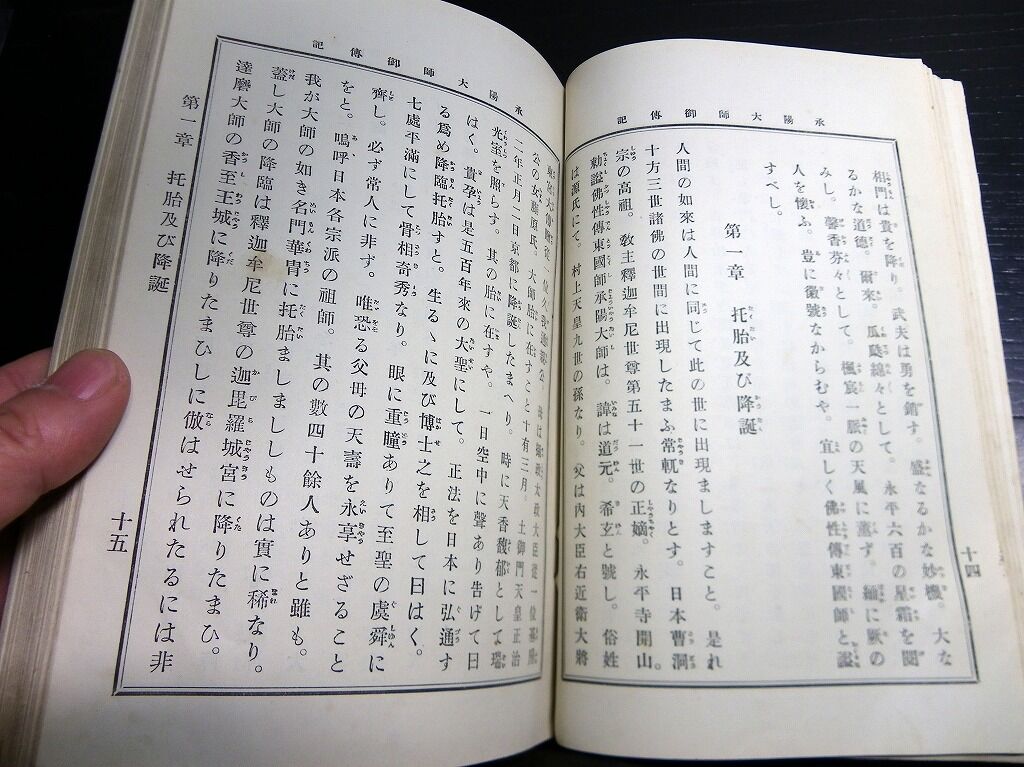 承陽大師御傳記
十四
相門は貴を降り。武夫は勇を銷す。盛なるかな妙機。大な
るかな道德。爾來。瓜瓞綿々として。永平六百の星霜を閲
みし。馨香芬々として。楓宸一脈の天風に薫ず。緬に厥の
人を懷ふ。豈に徽號なからむや。宜しく佛性傳東國師と謚
すべし。
第一章 托胎及び降誕
人間の如來は人間に同じて此の世に出現ましますこと。是れ
十方三世諸佛の世間に出現したまふ常軌なりとす。日本曹洞
宗の高祖。敎主釋迦牟尼世尊第五十一世の正嫡。永平寺開山。
勅謚佛性傳東國師承陽大師は。諱は道元。希玄と號し。俗姓
は源氏にて。村上天皇九世の孫なり。父は內大臣右近衞大將
承陽大師御傳記
公の女藤原氏。大師胎に在すこと十有三月。土御門天皇正治
二年正月二日京都に降誕したまへり。時に天香馥郁として瑞
光室を照らす。其の胎に在すや。一日空中に聲あり告げて曰
はく。貴孕は是五百年來の大聖にして。正法を日本に弘通す
る爲め降臨托胎すと。生るゝに及び博士之を相して曰はく。
七處平滿にして骨相奇秀なり。眼に重瞳ありて至聖の虞舜に
齊し。必ず常人に非ず。唯恐る父母の天壽を永享せざること
をと。嗚呼日本各宗派の祖師。其の數四十餘人ありと雖も。
我が大師の如き名門華冑に托胎ましまししものは實に稀なり。
蓋し大師の降臨は釋迦牟尼世尊の迦毘羅城宮に降りたまひ。
達磨大師の香至王城に降りたまひしに倣はせられたるには非
第一章 托胎及び降誕
十五